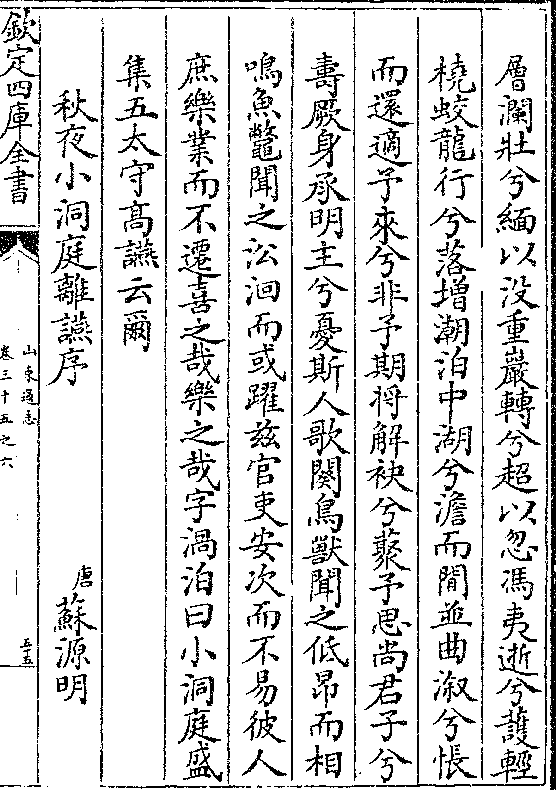 層瀾壯兮緬以没重巖轉兮超以忽馮夷逝兮護輕
橈蛟龍行兮落增潮泊中湖兮澹而閒並曲溆兮悵
而還適予來兮非予期將解袂兮藂予思尚君子兮
壽厥身承明主兮憂斯人歌闋鳥獸聞之低昂而相
鳴魚鼈聞之沿洄而或躍兹官吏安次而不易彼人
庶樂業而不遷喜之哉樂之哉字渦泊曰小洞庭盛
集五太守高讌云爾
秋夜小洞庭離讌序
唐 蘇源明
欽定四庫全書
山東通志
卷三十五之六
五五